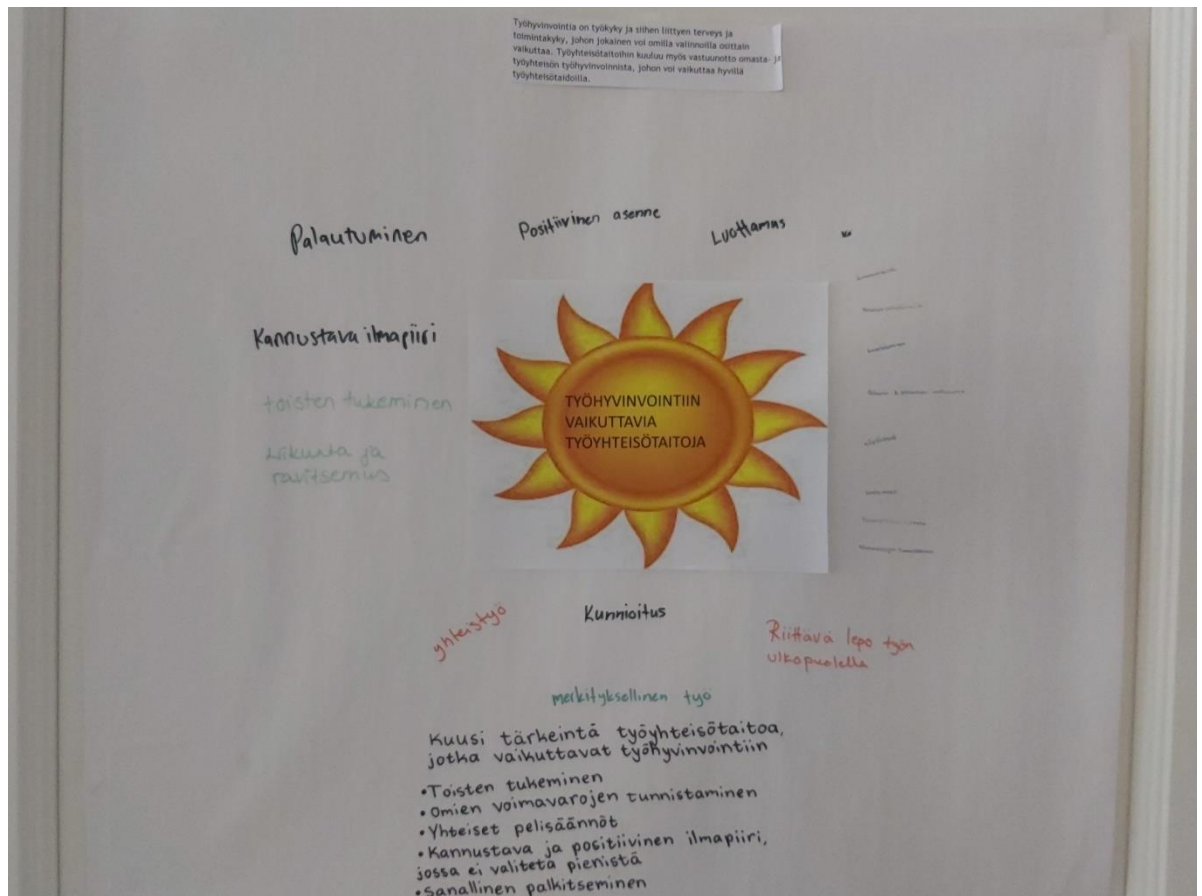 Työhyvinvointia on työkyky ja siihen liittyen terveys ja
toimintakyky, johon jokainen voi omilla valinnoilla osittain
vaikuttaa. Työyhteisötaitoihin kuuluu myös vastuunotto omasta- ja
työyhteisön työhyvinvoinnista, johon voi vaikuttaa hyvillä
työyhteisötaidoilla.
Palautuminen
Positiivinen asenne
Luottamus
Kannustava ilmapiiri
toisten tukeminen
Liikunta ja
ravitsemus
TYÖHYVINVOINTIIN
VAIKUTTAVIA
TYÖYHTEISÖTAITOJA
yhteistyö
Kunnioitus
Riittävä lepo työn
ulkopuolella
merkityksellinen työ
Kuusi tärkeintä työyhteisötaitoa,
jotka vaikuttavat työhyvinvointiin
•Toisten tukeminen
•Omien voimavarojen tunnistaminen
•Yhteiset pelisäännöt
•Kannustava ja positiivinen ilmapiiri,
jossa ei valiteta pienistä
•Sanallinen palkitseminen